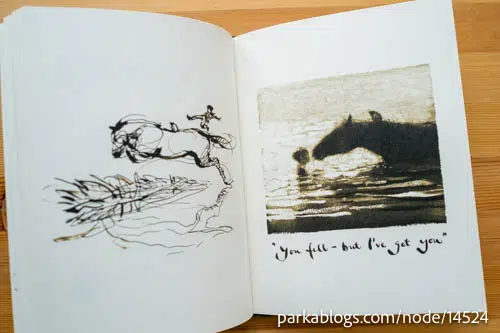 "You fell - but I've got you"
parkablogs.com/node/14524